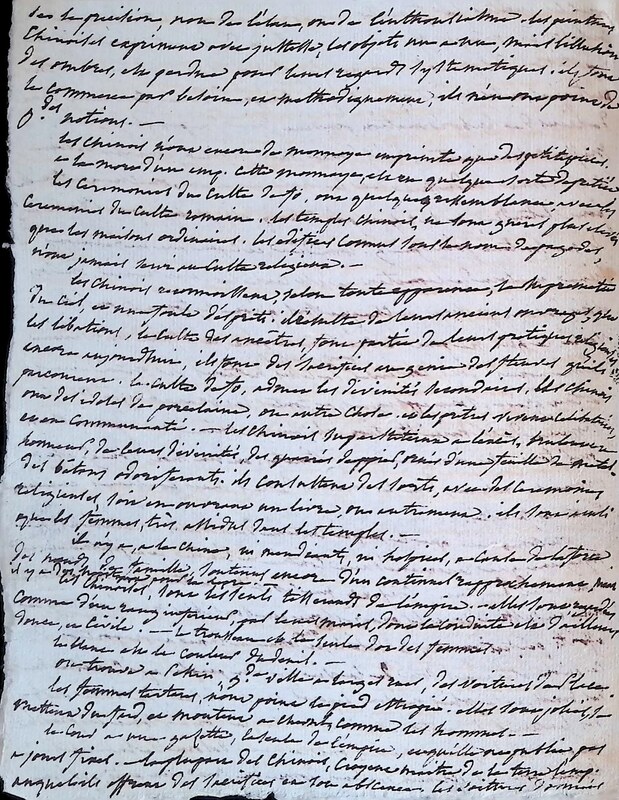 de la précision, non de l'élan, ou de l'enthousiasme. les peintres
Chinois expriment avec justesse, les objets un a un, mais l'illusion
des ombres, est perdue pour leurs regards systematiques. ils font
le commerce par besoin, et methodiquement; ils n'en ont point de
gdes notions. —
les Chinois n'ont encore de monnoye empreinte que des petites pieces.
a la mort d'un emp. cette monnoye, est en quelque sorte
les Ceremonies du Culte de fo, ont quelque ressemblance avec les
Ceremonies du Culte romain. les temples Chinois, ne sont gueres plus élevés
que les maisons ordinaires. les édifices connus sous le nom de pagodes,
n'ont jamais servi au Culte religieux. —
les Chinois reconnaissent, selon toute apparence, le
du Ciel, et une foule d'esprits: il résulte de leurs anciens ouvrages, que
les libations, le Culte des ancêtres, font partie de leurs pratiques
encore aujourdhui, ils font des sacrifices au genie des fleuves qu'ils
parcourent. le culte de fo, admet les divinités secondaires. les Chinois
ont des idoles de porcelaine, ou autre chose. et les prêtres vivent celibataires,
et en communauté. — les Chinois superstitieux a l'excès, brulent en
honneur, de leurs divinités, des quarrés de papier, ornés d'une feuille de métal,
des batons odoriferants. ils consultent des sorts, avec des Ceremonies
religieuses, soit en ouvrant un livre ou autrement. ils sont seuls
que les femmes, très assidus dans les temples. —
il n'y a, a la Chine, ni mendiants, ni hospices, a cause de la force
des nœuds de famille, soutenus encore d'un continuel rapprochement
il y a
les Chinoises, sont les seuls tisserands de l'empire. — elles sont regardées
comme d'un rang inferieur, par leurs maris, dont la conduite est d'ailleurs
douce, et Civile. — le trousseau est la seule dot des femmes.
le blanc est la couleur du deuil. —
on trouve a Pekin, gde ville a larges rues, des voitures de place.
les femmes tartares, n'ont point le pied estropié. elles sont jolies,
mettent du fard, et montent a cheval comme les hommes. —
la Cour a une gazette, la seule de l'empire, et qu'elle ne publie pas
a jours fixes. — la plupart des Chinois, croyent maitre de la terre l'emp.
auquel ils offrent des sacrifices en son absence. les